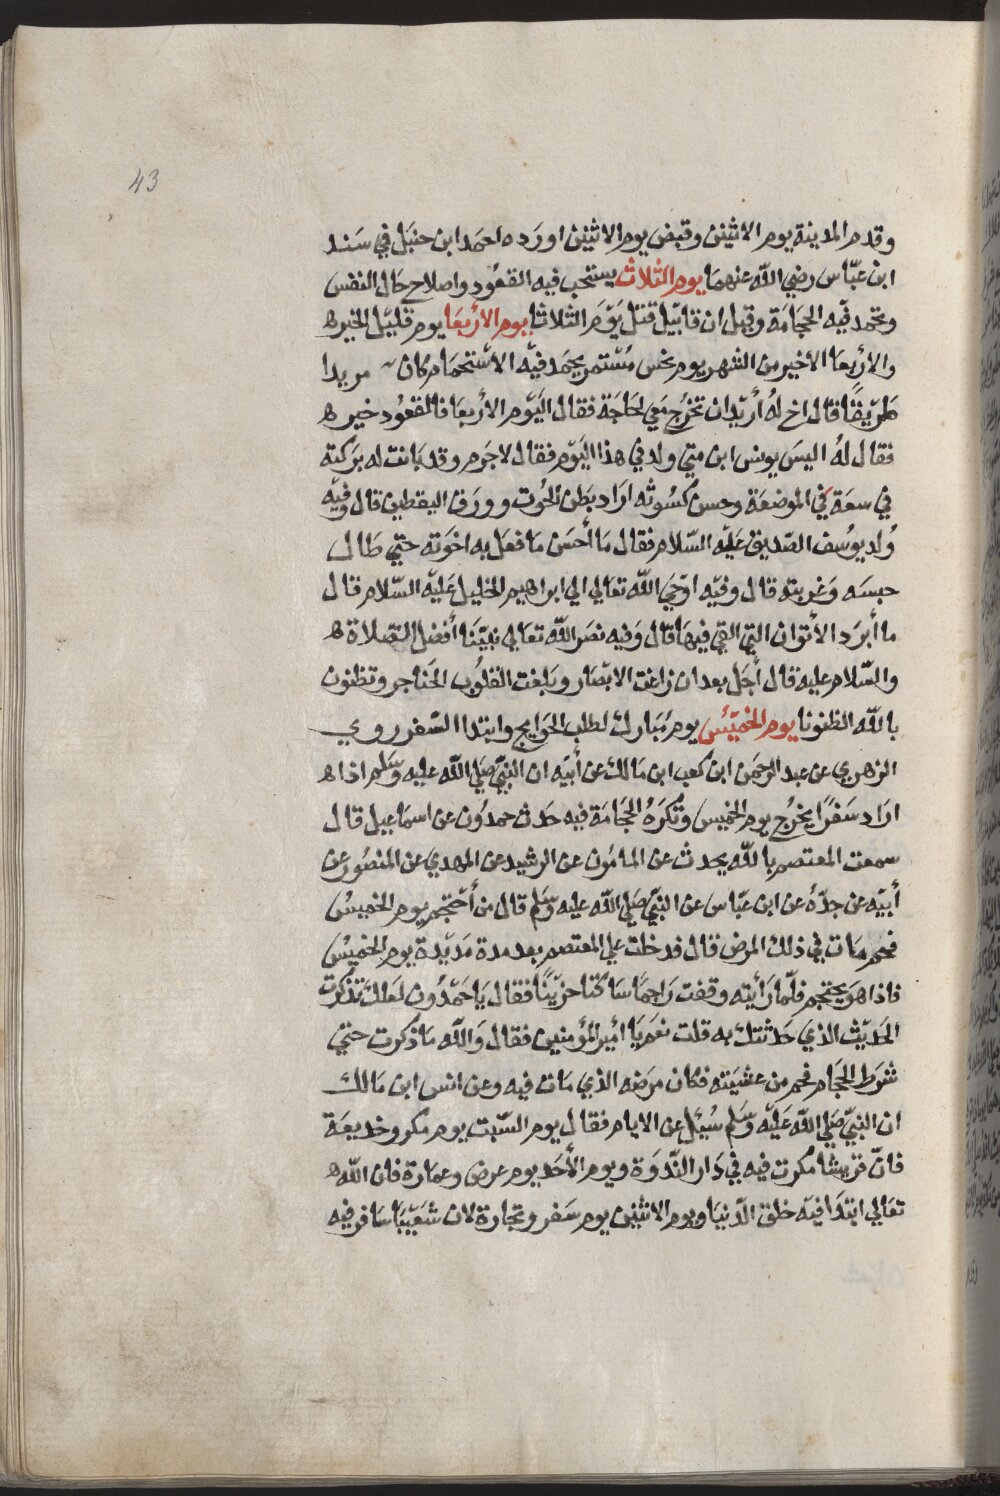 43
وقدم المدينة يوم الاثنين وقبض يوم الاثنين اورده احمد ابن حنبل في سند
ابن عبّاس رضي اللّه عنهما يوم الثلاث يستحب فيه القعُود واصلاح حال النفس
وتحمد فيه الحجامَة وقيل ان قابيل قتل يَوم الثلاثا يوم الأربعَا يوم قليل الخير ه
والأربعا الأخير من الشهر يوم نحس مسْتمر يحمد فيْه الاستحمام كان مريدا
طريقًا قال اخ لهُ أريْد ان تخرُج معي لحاجَة فقال اليَوم الأربعَا فالقعُود خير ه
فقال لهُ اليسَ يونس ابن متي ولد في هذا اليَوم فقال لاجرم وقد بانت له بركته
في سعَة في الموضعَة وحسن كسْوته اراد بطن الحُوت وورق اليقطين قال وفيْه
وُلد يوسُف الصّديق عَليْه السّلام فقال مَا أحسَن مَا فعَل به اخوَته حتي طال
حبسَه وَغربته قال وفيْه اوحَي اللّه تعالي الي ابراهيم الخليل عَليْه السّلام قال
ما أبرَد الأتوان التي القي فيهَا قال وَفيه نصَر اللّه تعَالي نبيّنَا أفضل الصّلاة ه
والسّلام عليه قال أجَل بعد ان زاغت الابصَار وبَلغت القلوُب الحَناجر وتظنون
باللّه الظنونا يوم الخميْس يوم مُبارك لطلب الحَوايج وابتدا السّفر روي
الزهري عن عبد الرحمن ابن كعب ابن مَالك عن أبيْه ان النبيّ صَلي اللّه عليه وَسَلم اذا ه
ارَاد سَفرًا يخرُج يوم الخميس وتُكرَهُ الحجَامَة فيه حَدث حمدُون عن اسماعيل قال
سمعت المعتصم باللّه يحدث عن المامُون عن الرشيد عن المهدي عن المنصُور عن
أبيْه عن جدّهُ عن ابن عبّاس عن النبيّ صَلي اللّه عليه وَسَلم قال من أحْتجم يوم الخميسْ
فحم مَات في ذلك المرض قال فدخلت علي المعتصم بعد مدة مَديْدة يوم الخميسْ
فاذا هوَ يحتجم فلمّا رَأيته وقفت رَاجمًا سَاكتا حزيْنًا فقال يَا حَمْدُون لعَلك تذكرت
الحَديْث الذي حَدثتك به قلت نعَم يَا أمير المؤمنين فقال وَاللّه مَا ذكرت حتيْ
شرَط الحجَام فحم من عشيته فكان مرَضه الذي مَات فيه وعن انس ابن مَالك
ان النبيّ صَلي اللّه عَليْه وَسَلم سُئِل عن الايام فقال يوم السّبت يوم مكر وخديعَة
فانّ قريشا مكرت فيه في دَار النّدوَة ويوم الأحَد يوم عرض وعمارة فان اللّه ه
تعَالي ابتدَا فيْه خلق الدّنيَا ويوم الاثنيْن يوم سَفر وتجارة لان شعَيْبًا سَافر فيه